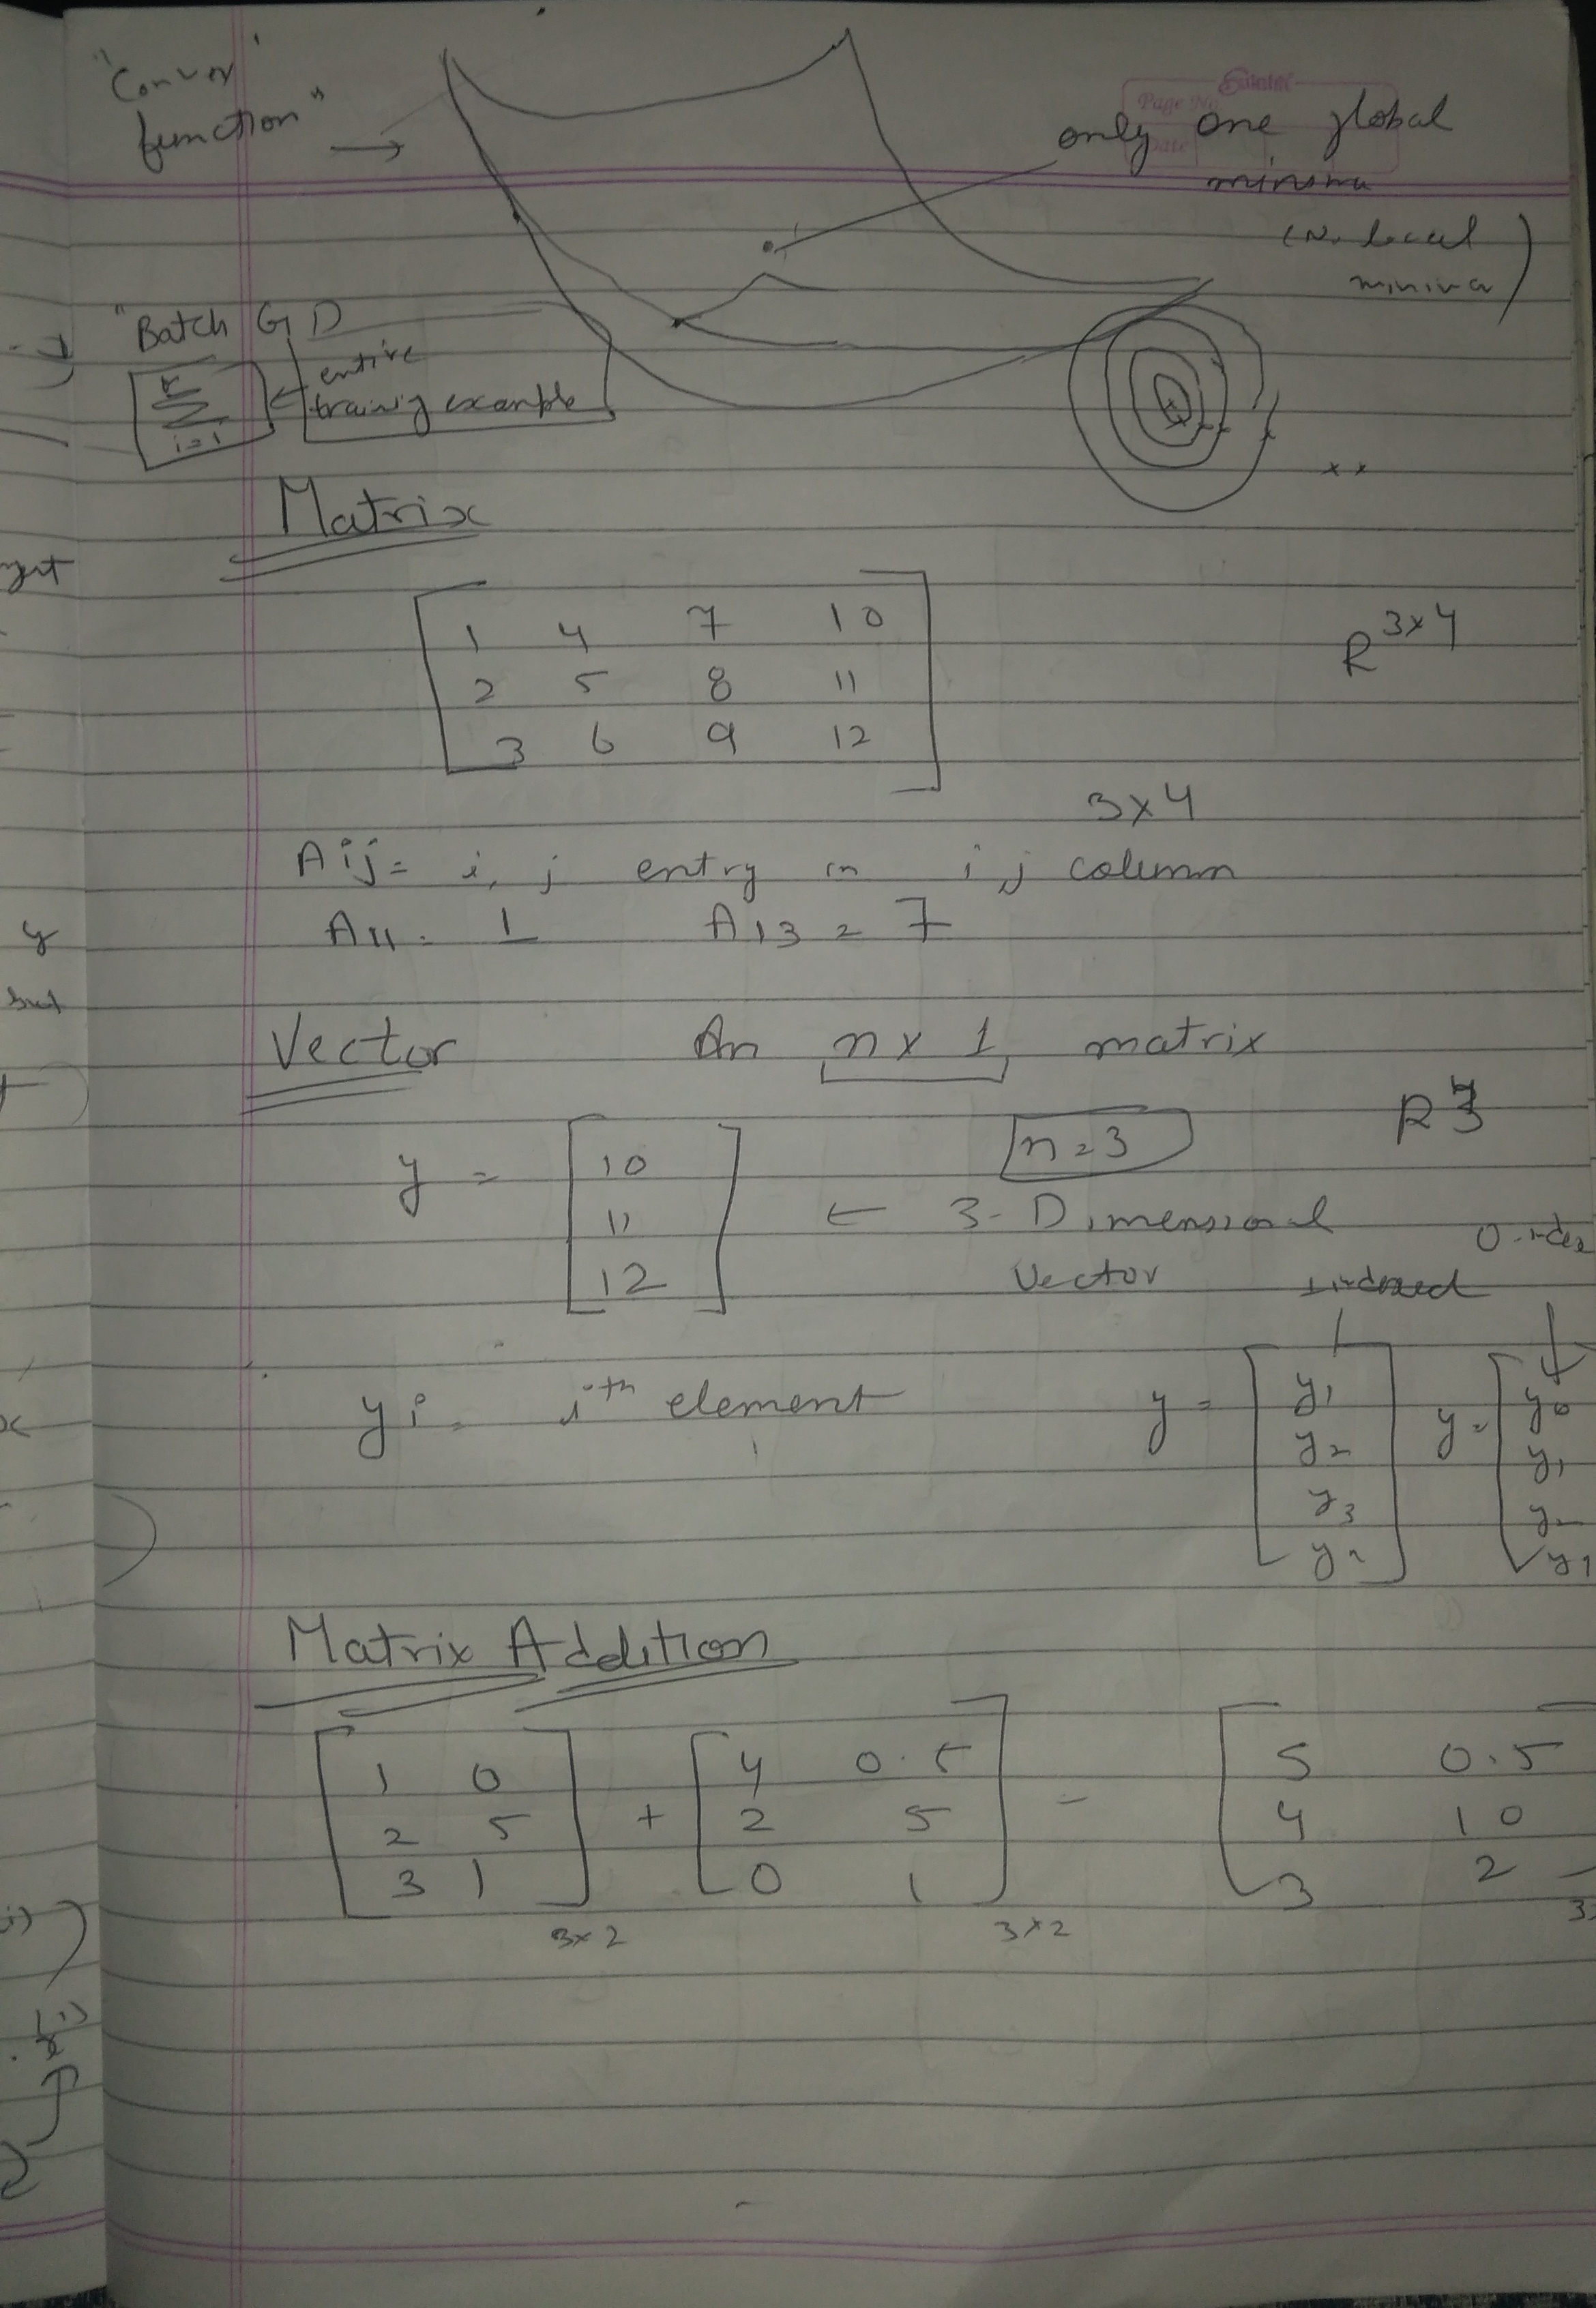 "Convex
function" →
only one global
minima
(No local
minima)
"Batch GD
entire
training example
i=1
Matrix
1 4 7 10
2 5 8 11
3 6 9 12
R 3x4
3x4
Aij = i, j entry in i, j column
A11 = 1 A13 = 7
Vector An n x 1 matrix
y = 10
11
12
n=3
R3
← 3-Dimensional
Vector
indexed
yi = ith element
y = y1
y2
y3
y =
y0
y1
Matrix Addition
1 0
2 5
3 1
3x2
+
4 0.5
2 5
0 1
3x2
=
5 0.5
4 10
3 2